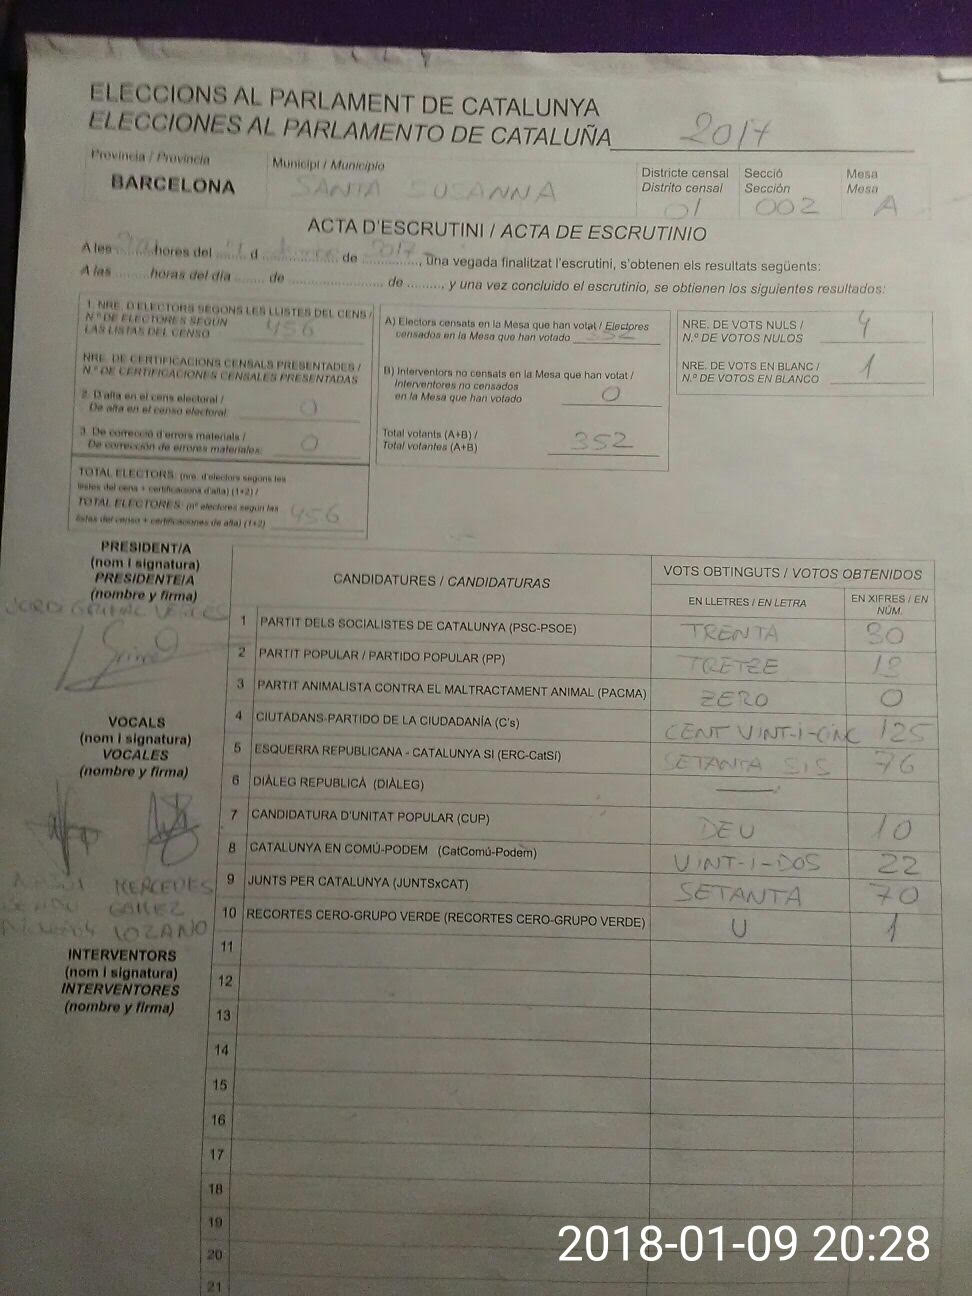 ELECCIONS AL PARLAMENT DE CATALUNYA
ELECCIONES AL PARLAMENTO DE CATALUÑA 2017
Provincia / Provincia
BARCELONA
Municipi / Municipio
SANTA SUSANNA
Districte censal
Distrito censal
01
Secció
Sección
002
Mesa
Mesa
A
ACTA D'ESCRUTINI / ACTA DE ESCRUTINIO
A les hores del d de 2017, una vegada finalitzat l'escrutini, s'obtenen els resultats següents:
A las horas del día de de , y una vez concluido el escrutinio, se obtienen los siguientes resultados:
1. NRE. D'ELECTORS SEGONS LES LLISTES DEL CENS /
N.º DE ELECTORES SEGÚN
LAS LISTAS DEL CENSO 456
NRE. DE CERTIFICACIONS CENSALS PRESENTADES /
N.º DE CERTIFICACIONES CENSALES PRESENTADAS
2. D'alta en el cens electoral /
De alta en el censo electoral 0
3. De correcció d'errors materials /
De corrección de errores materiales: 0
TOTAL ELECTORS: (nre. d'electors segons les
llistes del cens + certificacions d'alta) (1+2) /
TOTAL ELECTORES: (nº electores según las
listas del censo + certificaciones de alta) (1+2) 456
A) Electors censats en la Mesa que han votat / Electores
censados en la Mesa que han votado 352
B) Interventors no censats en la Mesa que han votat /
Interventores no censados
en la Mesa que han votado 0
Total votants (A+B) /
Total votantes (A+B) 352
NRE. DE VOTS NULS /
N.º DE VOTOS NULOS 4
NRE. DE VOTS EN BLANC /
N.º DE VOTOS EN BLANCO 1
PRESIDENT/A
(nom i signatura)
PRESIDENTE/A
(nombre y firma)
VOCALS
(nom i signatura)
VOCALES
(nombre y firma)
MERCEDES
LOZANO
INTERVENTORS
(nom i signatura)
INTERVENTORES
(nombre y firma)
CANDIDATURES / CANDIDATURAS
VOTS OBTINGUTS / VOTOS OBTENIDOS
EN LLETRES / EN LETRA
EN XIFRES / EN
NÚM.
1 PARTIT DELS SOCIALISTES DE CATALUNYA (PSC-PSOE) TRENTA 30
2 PARTIT POPULAR / PARTIDO POPULAR (PP) TRETZE 13
3 PARTIT ANIMALISTA CONTRA EL MALTRACTAMENT ANIMAL (PACMA) ZERO 0
4 CIUTADANS-PARTIDO DE LA CIUDADANÍA (C's) CENT VINT-I-CINC 125
5 ESQUERRA REPUBLICANA - CATALUNYA SI (ERC-CatSí) SETANTA SIS 76
6 DIÀLEG REPUBLICÀ (DIÀLEG)
7 CANDIDATURA D'UNITAT POPULAR (CUP) DEU 10
8 CATALUNYA EN COMÚ-PODEM (CatComú-Podem) VINT-I-DOS 22
9 JUNTS PER CATALUNYA (JUNTSxCAT) SETANTA 70
10 RECORTES CERO-GRUPO VERDE (RECORTES CERO-GRUPO VERDE) U 1
11
12
13
14
15
16
17
18
19
20
21
2018-01-09 20:28